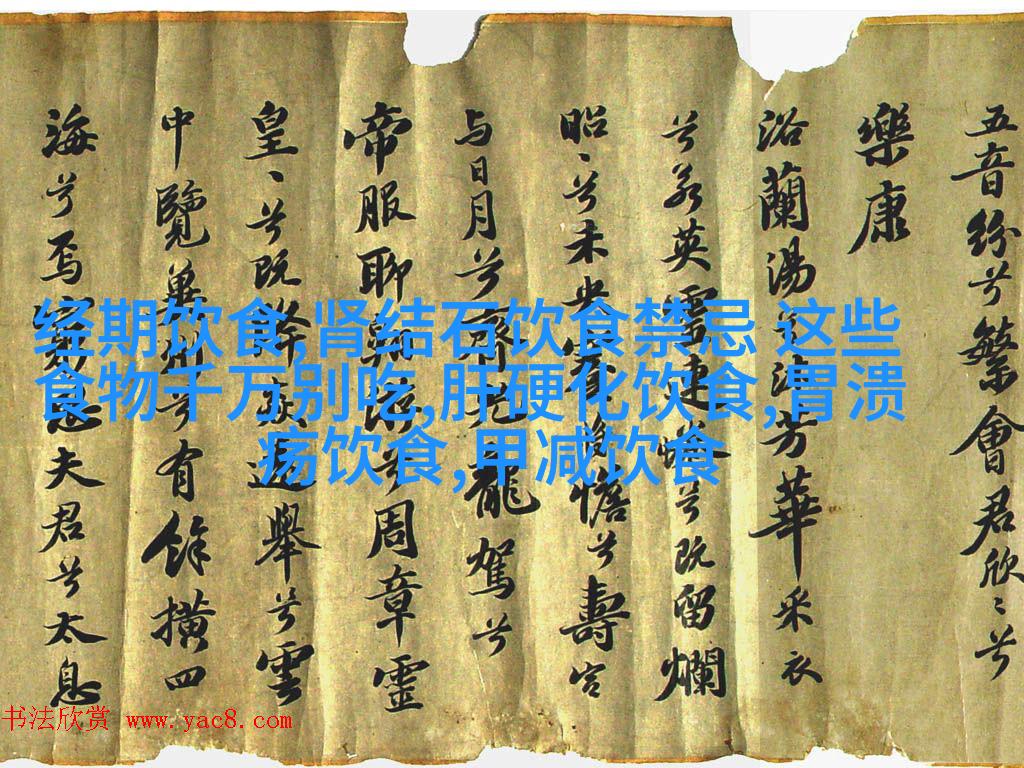 五音紛兮繁會君欣〻兮
樂康
浴蘭湯兮沐芳華采衣
兮若英靈連蜷兮既留爛
昭〻兮未央蹇將憺兮壽宮
与日月兮齊光龍駕兮
帝服聊翱遊兮周章靈
皇〻兮既降猋遠舉兮雲
中覽冀州兮有餘橫四
海兮焉窮思夫君兮太息
经期饮食,肾结石饮食禁忌 这些
食物千万别吃,肝硬化饮食,胃溃
疡饮食,甲减饮食
书法欣赏 www.yac8.com